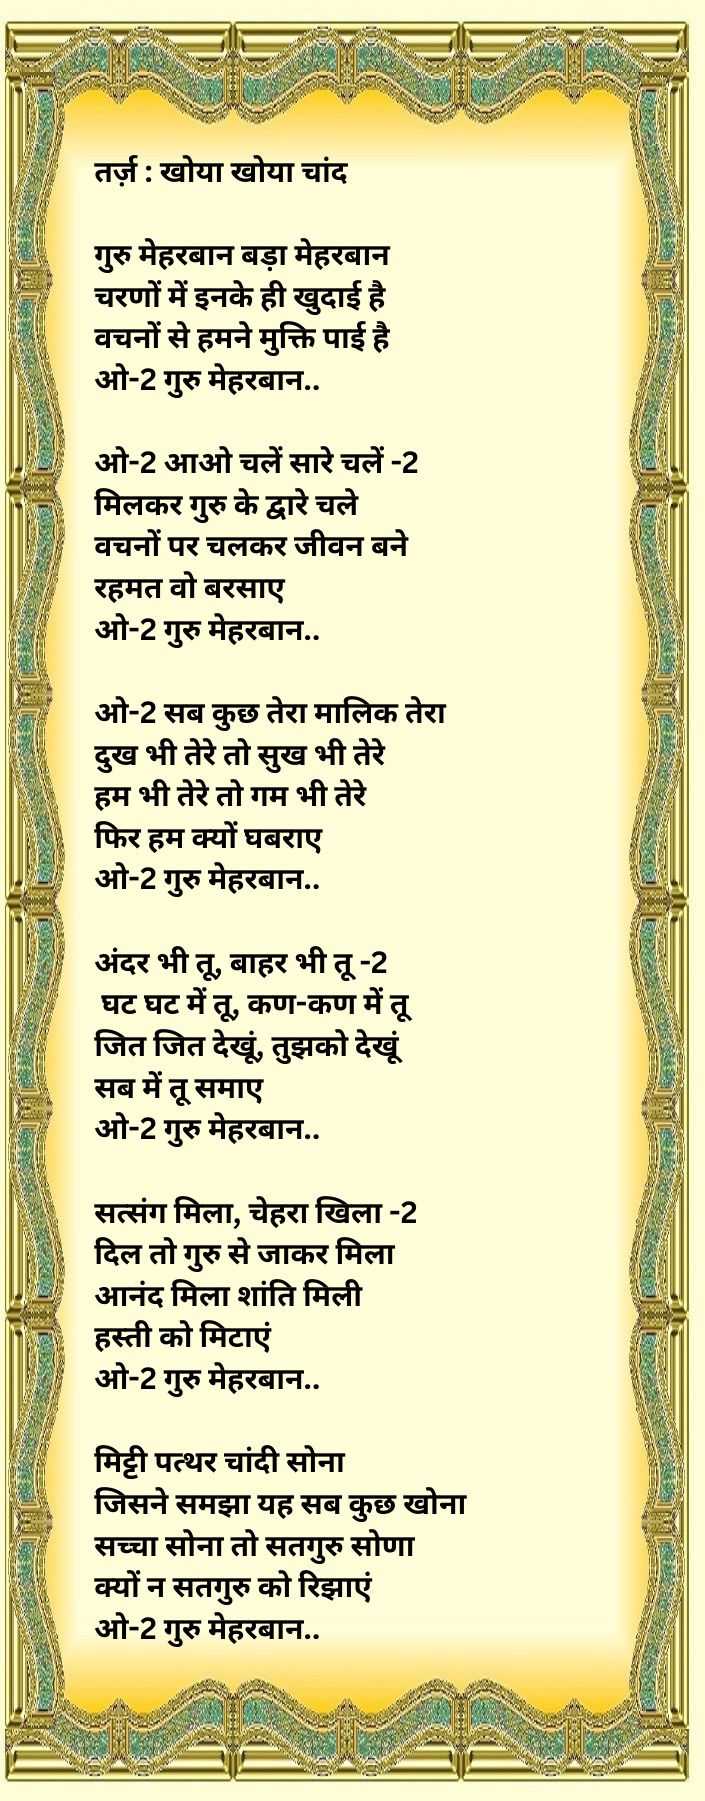 तर्ज़ : खोया खोया चांद
गुरु मेहरबान बड़ा मेहरबान
चरणों में इनके ही खुदाई है
वचनों से हमने मुक्ति पाई है
ओ-2 गुरु मेहरबान..
ओ-2 आओ चलें सारे चलें -2
मिलकर गुरु के द्वारे चले
वचनों पर चलकर जीवन बने
रहमत वो बरसाए
ओ-2 गुरु मेहरबान..
ओ-2 सब कुछ तेरा मालिक तेरा
दुख भी तेरे तो सुख भी तेरे
हम भी तेरे तो गम भी तेरे
फिर हम क्यों घबराए
ओ-2 गुरु मेहरबान..
अंदर भी तू, बाहर भी तू -2
घट घट में तू, कण-कण में तू
जित जित देखूं, तुझको देखूं
सब में तू समाए
ओ-2 गुरु मेहरबान..
सत्संग मिला, चेहरा खिला -2
दिल तो गुरु से जाकर मिला
आनंद मिला शांति मिली
हस्ती को मिटाएं
ओ-2 गुरु मेहरबान..
मिट्टी पत्थर चांदी सोना
जिसने समझा यह सब कुछ खोना
सच्चा सोना तो सतगुरु सोणा
क्यों न सतगुरु को रिझाएं
ओ-2 गुरु मेहरबान..